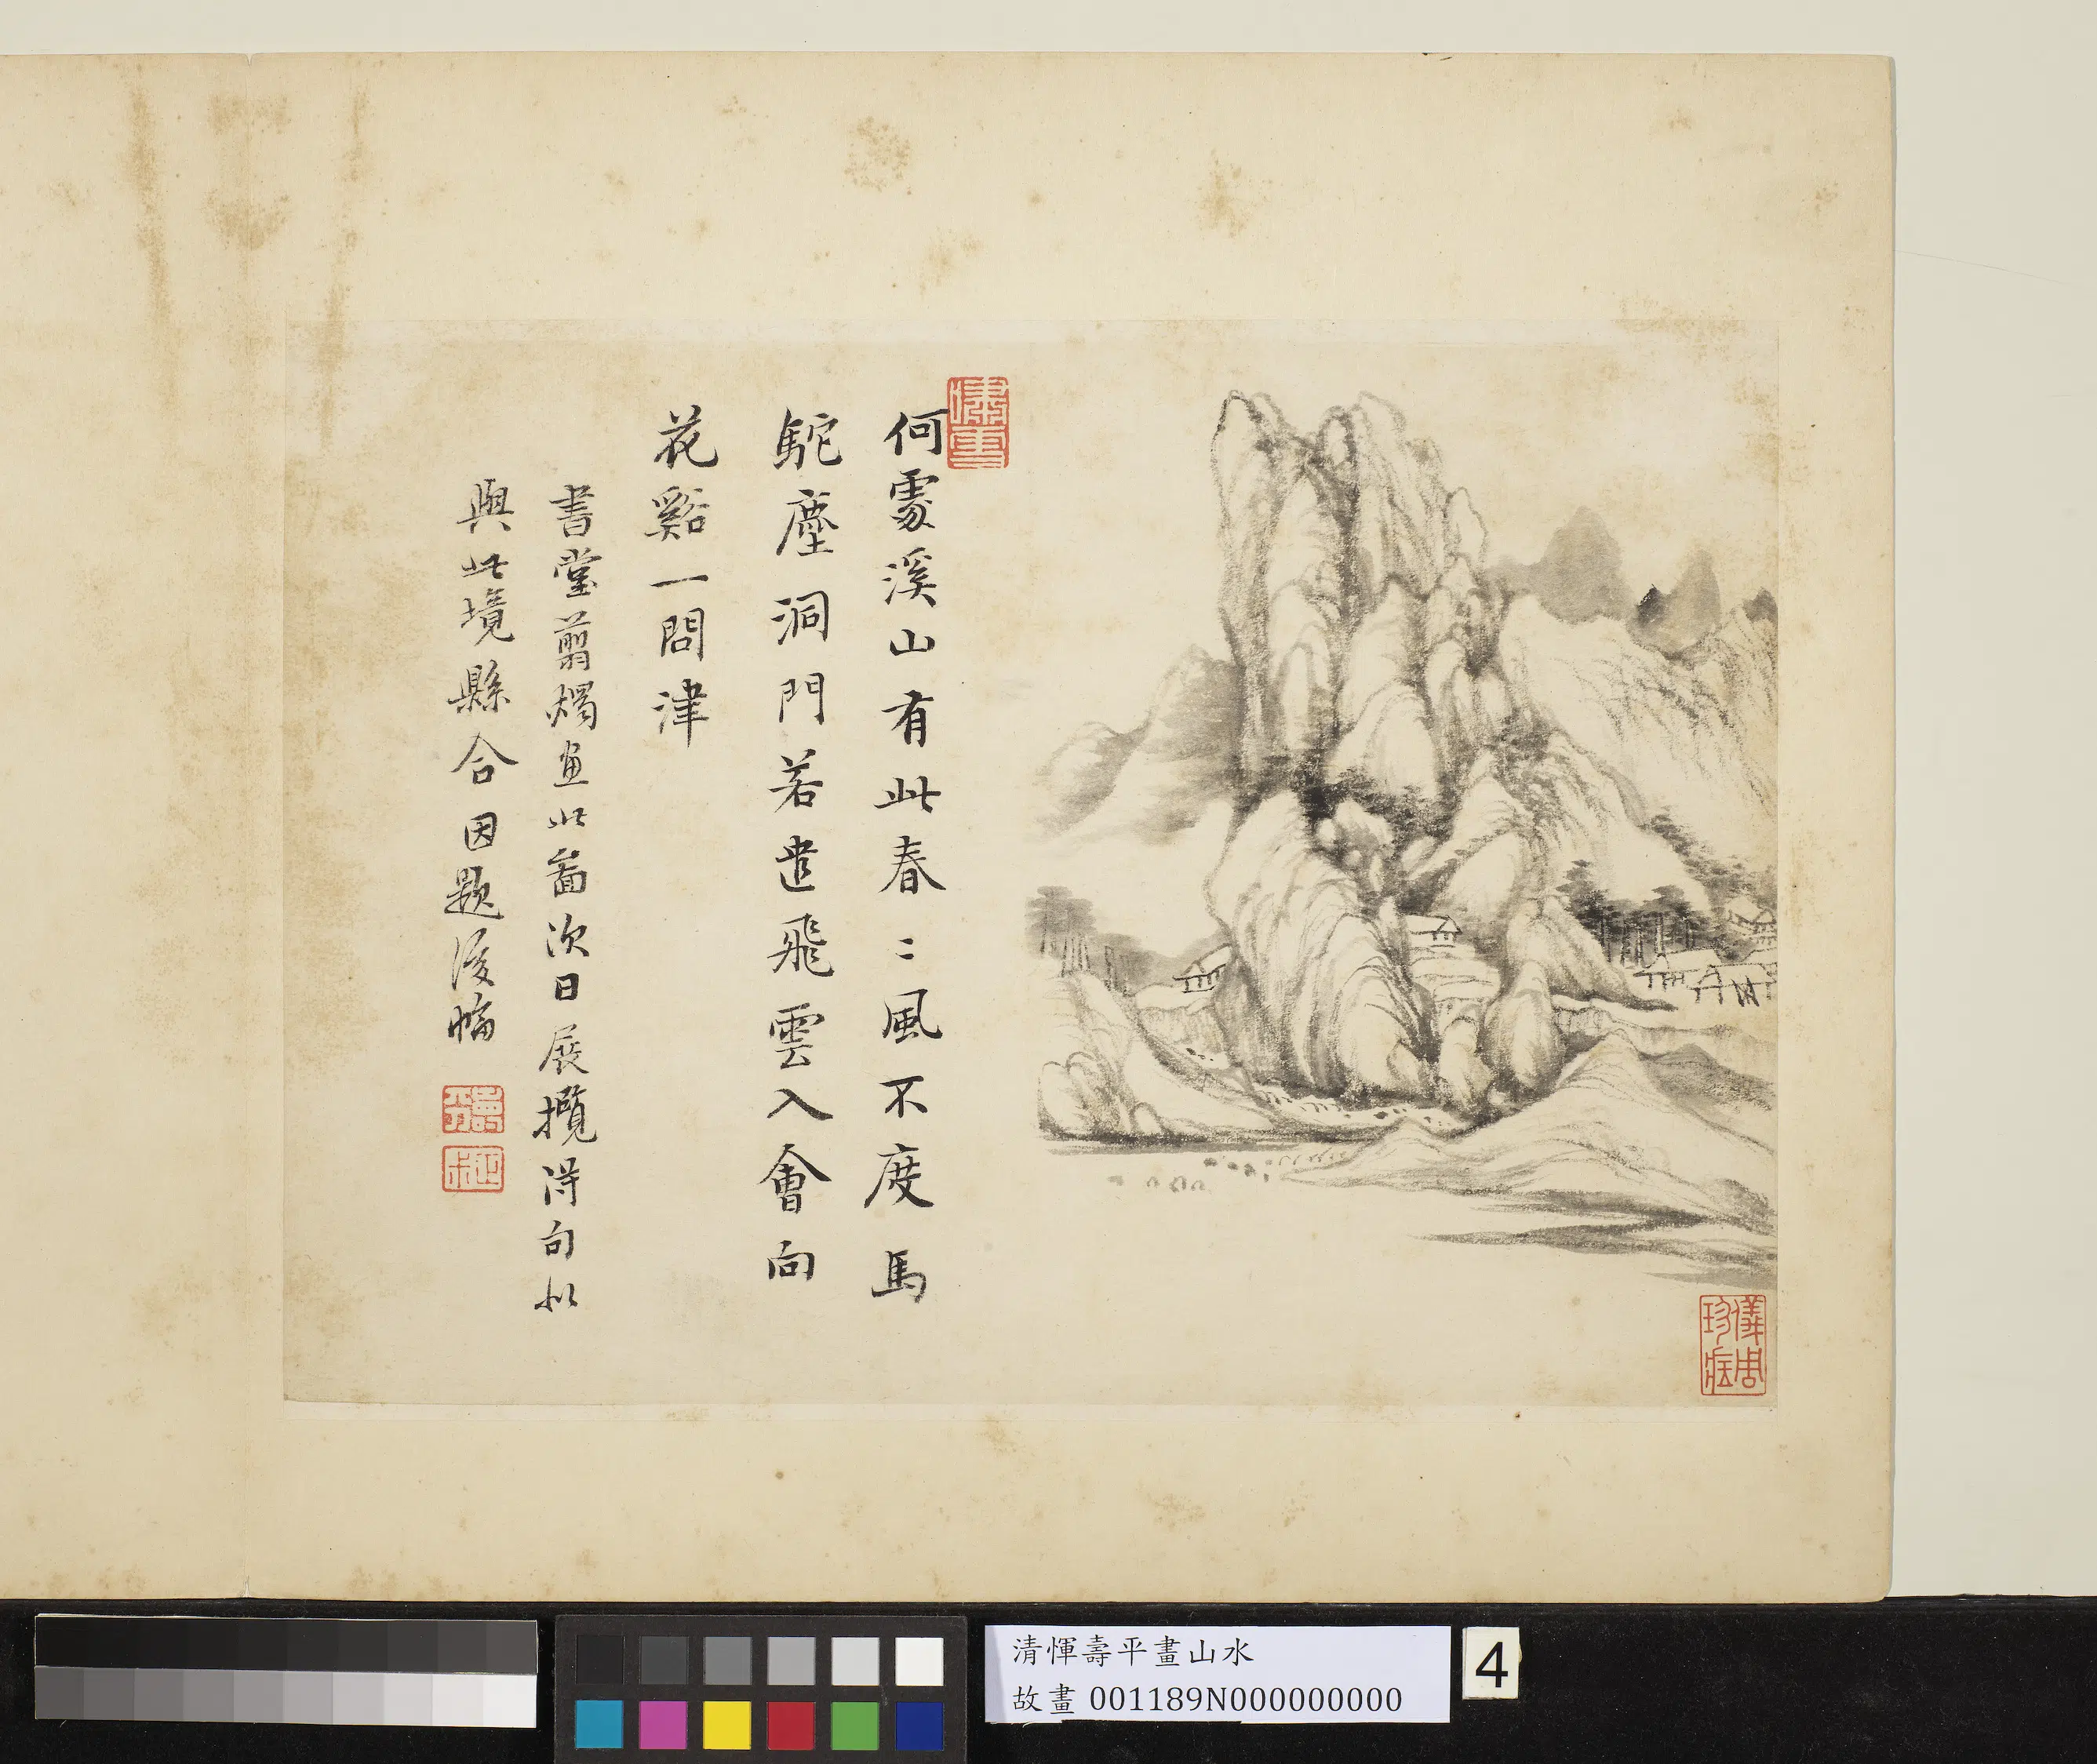 何處溪山有此春〻風不度馬
駝塵洞門若遣飛雲入會向
花谿一問津
書堂翦燭画此啚次日展攬得句似
與此境縣合因題後幅
儀周珍藏
清惲壽平畫山水
故畫 001189N000000000
4